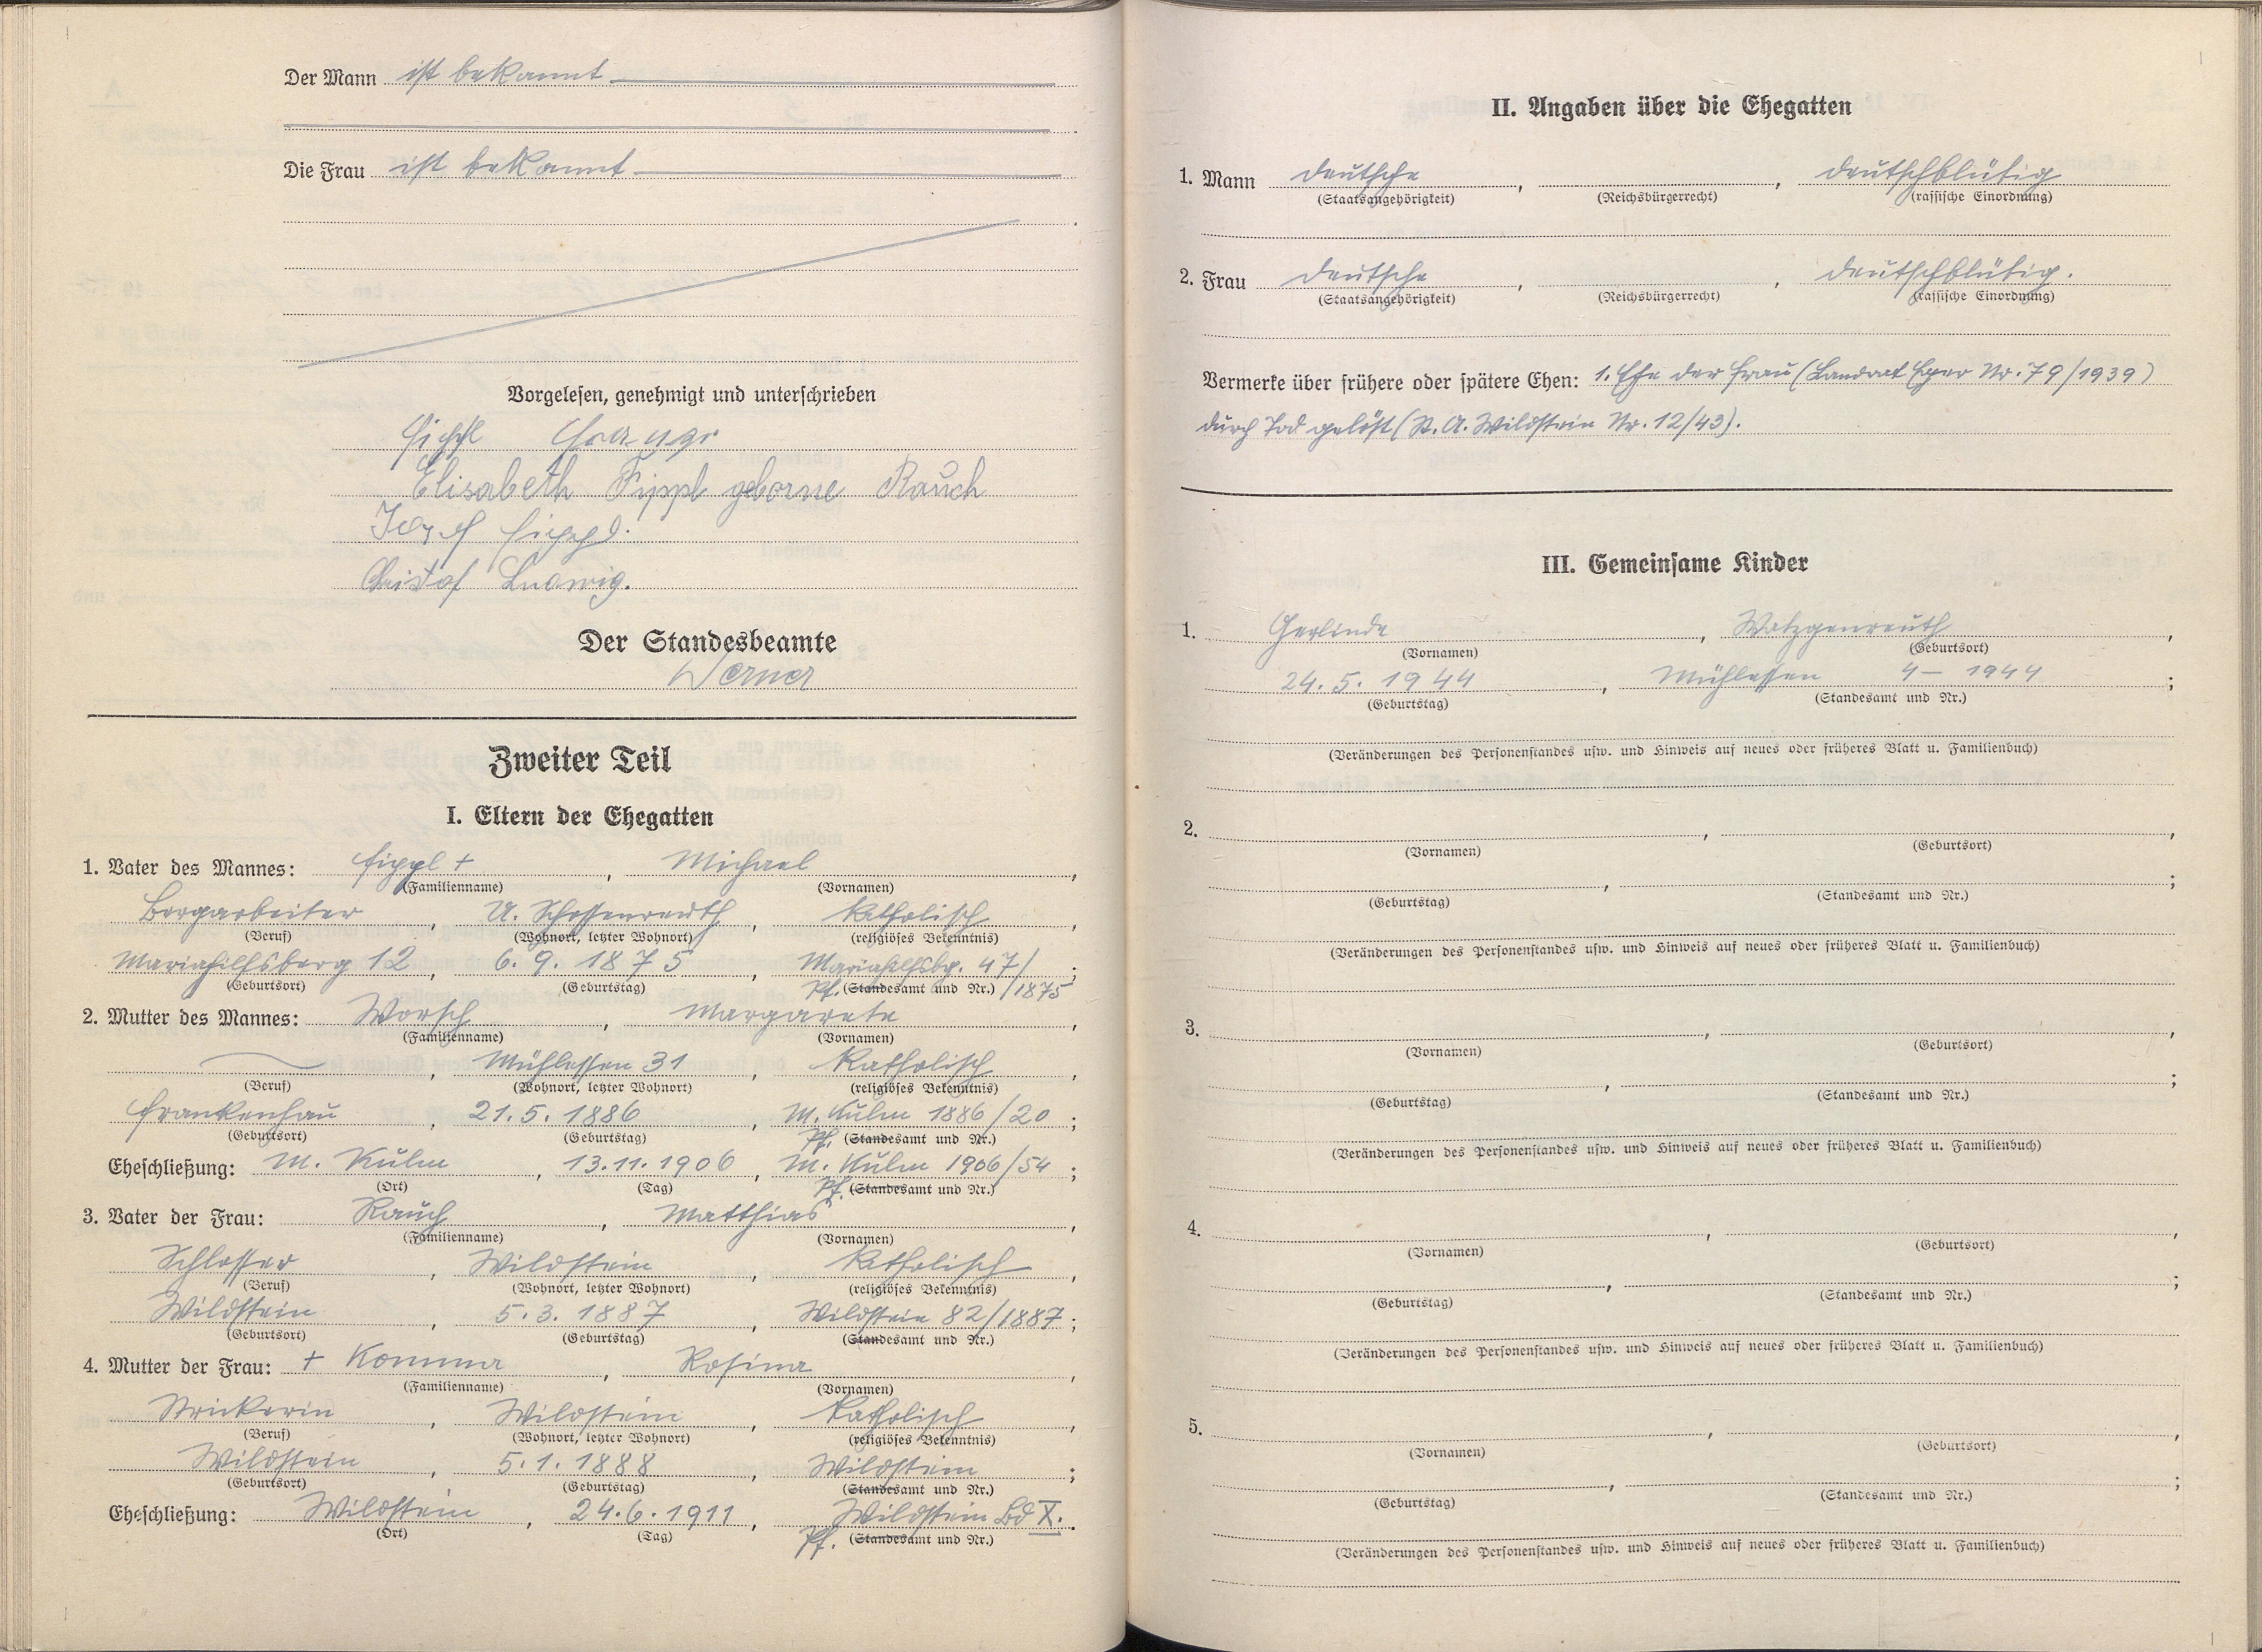 Der Mann ist bekannt
Die Frau ist bekannt
Vorgelesen, genehmigt und unterschrieben
Fippl Franz
Elisabeth Fippl geborne Rauch
Josef Fippl.
Christof Ludwig.
Der Standesbeamte
Werner
Zweiter Teil
I. Eltern der Ehegatten
1. Vater des Mannes: Fippl +, Michael,
(Familienname) (Vornamen)
Bergarbeiter, U. Schossenreuth, katholisch,
(Beruf) (Wohnort, letzter Wohnort) (religiöses Bekenntnis)
Mariahilfsberg 12, 6. 9. 1875, Mariahilfsbg. 47/1875;
(Geburtsort) (Geburtstag) Pf. (Standesamt und Nr.)
2. Mutter des Mannes: Worsch, Margarete,
(Familienname) (Vornamen)
Mühlessen 31, katholisch,
(Beruf) (Wohnort, letzter Wohnort) (religiöses Bekenntnis)
Frankenhau, 21. 5. 1886, M. Kulm 1886/20;
(Geburtsort) (Geburtstag) Pf. (Standesamt und Nr.)
Eheschließung: M. Kulm, 13. 11. 1906, M. Kulm 1906/54;
(Ort) (Tag) Pf. (Standesamt und Nr.)
3. Vater der Frau: Rauch, Matthias,
(Familienname) (Vornamen)
Schlosser, Wildstein, katholisch,
(Beruf) (Wohnort, letzter Wohnort) (religiöses Bekenntnis)
Wildstein, 5. 3. 1887, Wildstein 82/1887;
(Geburtsort) (Geburtstag) (Standesamt und Nr.)
4. Mutter der Frau: + Komma, Rosina,
(Familienname) (Vornamen)
Strickerin, Wildstein, katholisch,
(Beruf) (Wohnort, letzter Wohnort) (religiöses Bekenntnis)
Wildstein, 5. 1. 1888, Wildstein;
(Geburtsort) (Geburtstag) (Standesamt und Nr.)
Eheschließung: Wildstein, 24. 6. 1911, Wildstein Bd X.
(Ort) (Tag) Pf. (Standesamt und Nr.)
II. Angaben über die Ehegatten
1. Mann deutsche, , deutschblütig
(Staatsangehörigkeit) (Reichsbürgerrecht) (rassische Einordnung)
2. Frau deutsche, , deutschblütig.
(Staatsangehörigkeit) (Reichsbürgerrecht) (rassische Einordnung)
Vermerke über frühere oder spätere Ehen: 1. Ehe der Frau (Landrat Eger Nr. 79/1939)
durch Tod gelöst (St. A. Wildstein Nr. 12/43).
III. Gemeinsame Kinder
1. Gerlinde, Watzgenreuth,
(Vornamen) (Geburtsort)
24. 5. 1944, Mühlessen 4 – 1944;
(Geburtstag) (Standesamt und Nr.)
(Veränderungen des Personenstandes usw. und Hinweis auf neues oder früheres Blatt u. Familienbuch)
2. , ,
(Vornamen) (Geburtsort)
, ;
(Geburtstag) (Standesamt und Nr.)
(Veränderungen des Personenstandes usw. und Hinweis auf neues oder früheres Blatt u. Familienbuch)
3. , ,
(Vornamen) (Geburtsort)
, ;
(Geburtstag) (Standesamt und Nr.)
(Veränderungen des Personenstandes usw. und Hinweis auf neues oder früheres Blatt u. Familienbuch)
4. , ,
(Vornamen) (Geburtsort)
, ;
(Geburtstag) (Standesamt und Nr.)
(Veränderungen des Personenstandes usw. und Hinweis auf neues oder früheres Blatt u. Familienbuch)
5. , ,
(Vornamen) (Geburtsort)
, ;
(Geburtstag) (Standesamt und Nr.)
(Veränderungen des Personenstandes usw. und Hinweis auf neues oder früheres Blatt u. Familienbuch)